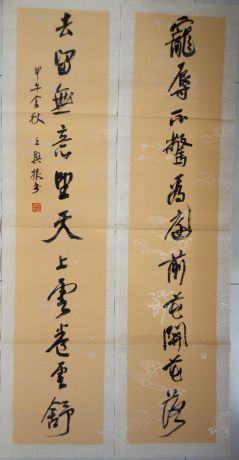 寵辱不驚看庭前花開花落
去留無意望天上雲卷雲舒
甲午金秋